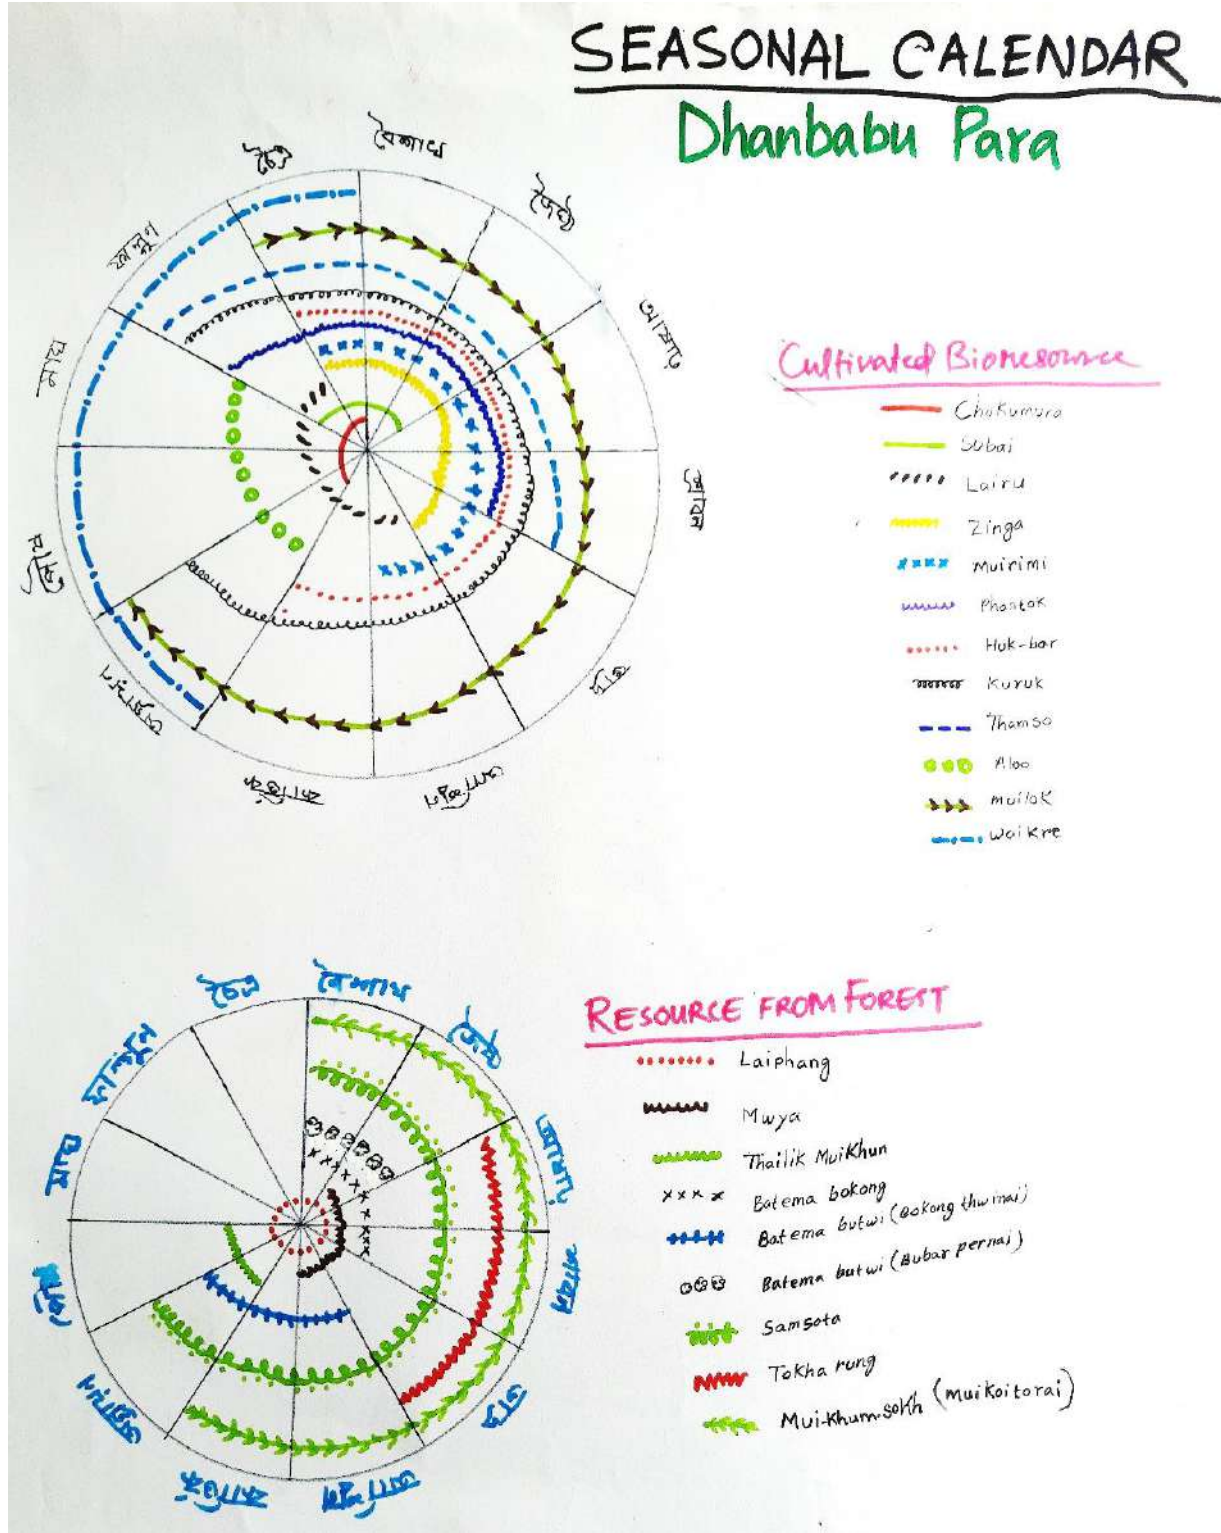 SEASONAL CALENDAR
Dhanbabu Para
চৈত্র
বৈশাখ
জৈষ্ঠ্য
আষাঢ়
শ্রাবন
ভাদ্র
আশ্বিন
কার্তিক
অগ্রায়ন
পৌষ
মাঘ
ফাল্গুণ
Cultivated Bioresource
Chakumura
Sobai
Lairu
Zinga
Muirimi
Phantok
Huk-bar
Kuruk
Thamso
Aloo
muilok
Waikre
চৈত্র
বৈশাখ
জৈষ্ঠ
শাবন
ভাদ্র
আশ্বিন
কার্তিক
পৌষ
মাঘ
ফাল্গুন
RESOURCE FROM FOREST
Laiphang
Mwya
Thailik MuiKhun
Batema bokong
Batema butwi (Bokong thwinai)
Batema butwi (Bubar pernai)
Samsota
Tokha rung
Mui-khum-sokh (muikoitorai)